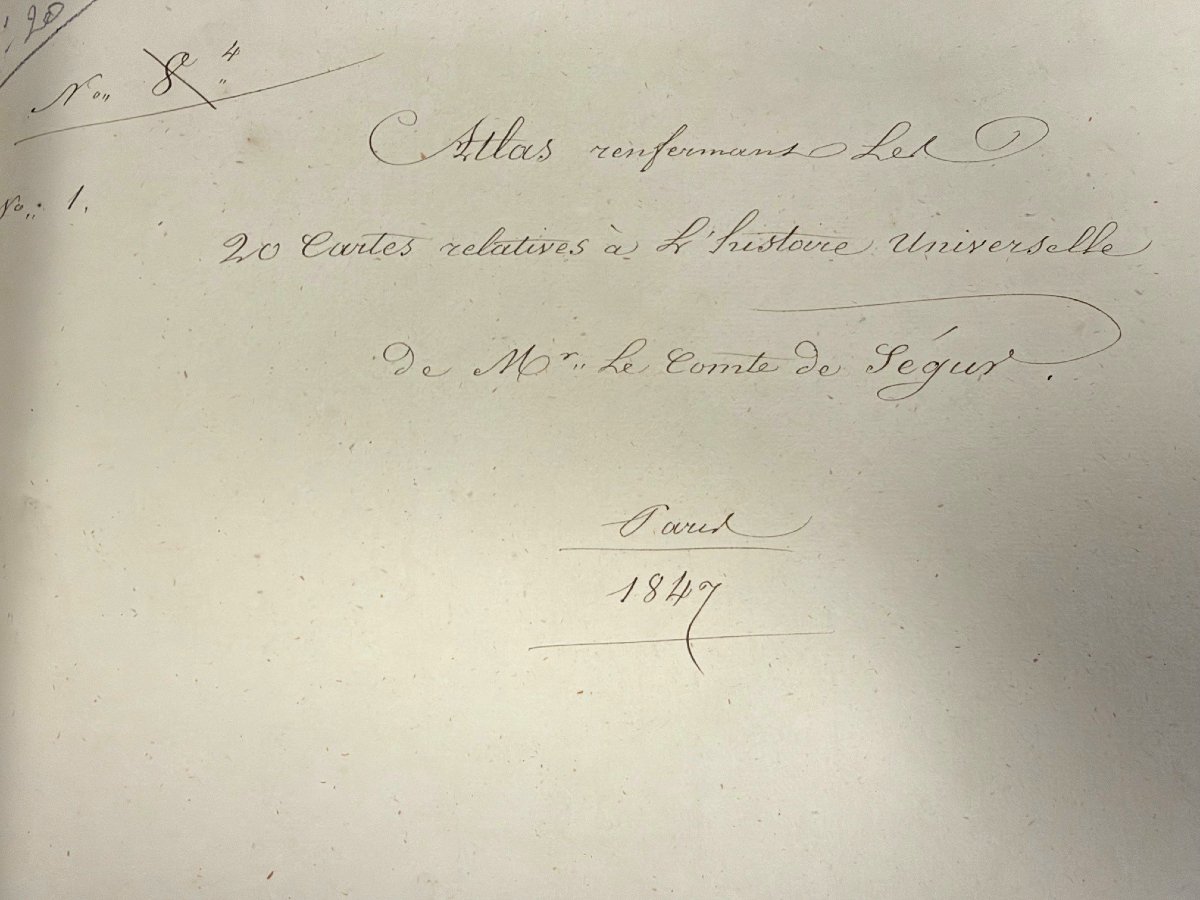 20
No. 8 4
Atlas renfermant Les
No. 1.
20 Cartes relatives à L'histoire Universelle
de Mr. Le Comte de Ségur.
Paris
1847